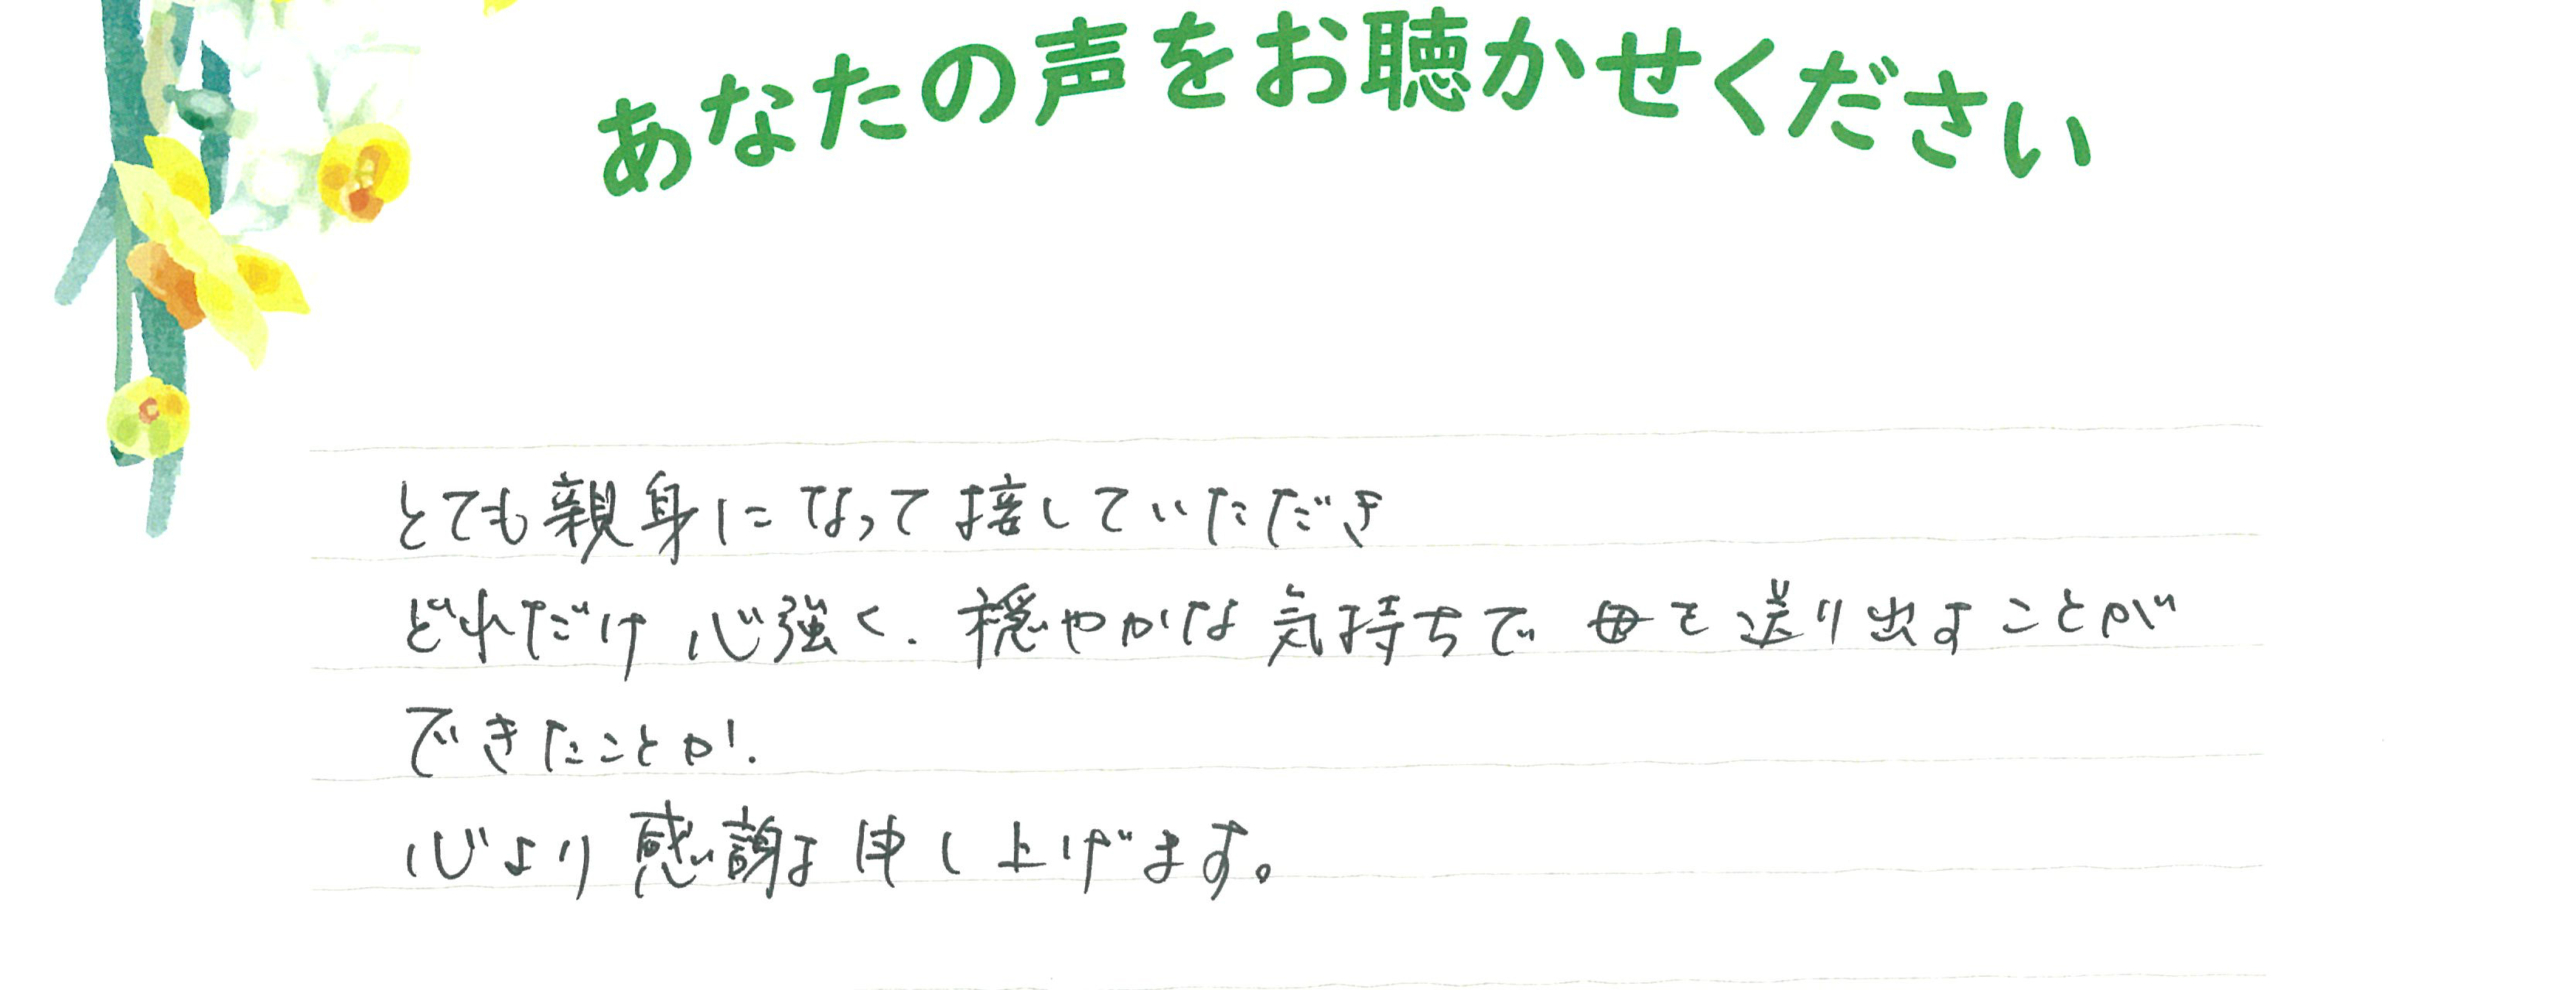 あなたの声をお聴かせください
とても親身になって接していただき
どれだけ心強く、穏やかな気持ちで母を送り出すことが
できたことか!
心より感謝申し上げます。